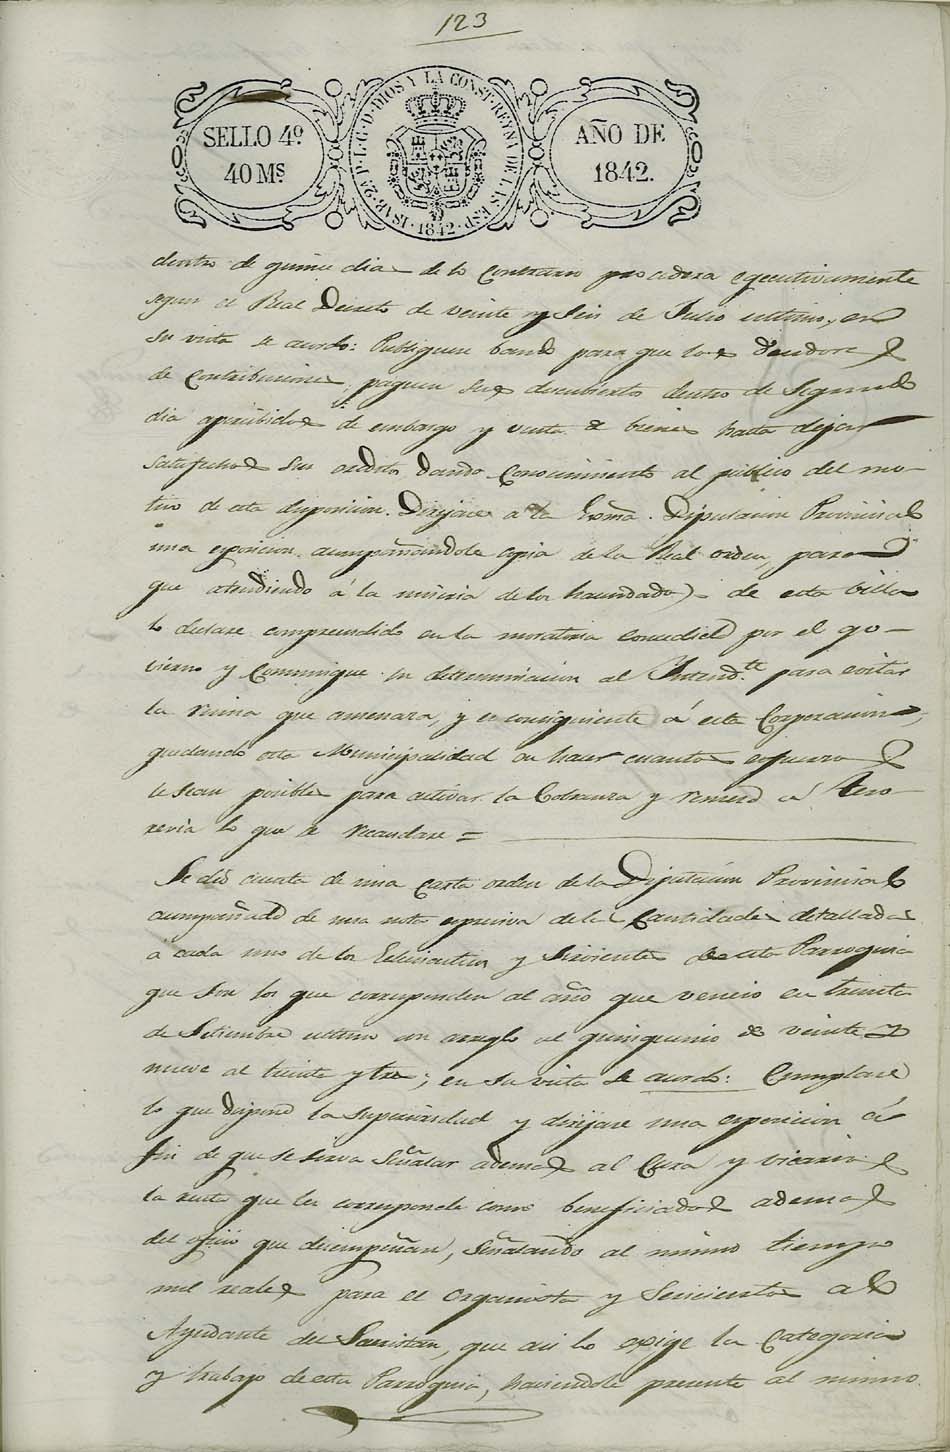 123
SELLO 4º
40 Ms
ISAB. 2ª P. L. G. D. DIOS Y LA CONST. REYNA DE LAS ESP.
1842
AÑO DE
1842.
dentro de quince dias de lo contrario procedera egecutivamente
segun el Real Decreto de veinte y seis de Julio ultimo, en
su vista se acordó: Publiquese bando para que los deudores
de contribuciones, paguen sus descubiertos dentro de segundo
dia apercibidos de embargo y venta de bienes hasta dejar
satisfechos sus creditos dando conocimiento al público del mo-
tivo de esta disposicion. Dirijase a la Exmã. Diputacion Provincial
una esposicion acompañandole copia de la Real orden, para
que atendiendo á la miseria de los hacendados de esta villa
lo declare comprendido en la moratoria concedida por el go-
vierno y comunique su determinacion al Intend.te para evitar
la ruina que amenaza, y es consiguiente á esta Corporacion,
quedando esta Municipalidad en hacer cuantos esfuerzos
le sean posibles para activar la Cobranza y remesa á Teso-
reria lo que se recaudare =
Se dió cuenta de una carta orden de la Diputacion Provincial
acompañada de una nota espresiva de las cantidades detalladas
á cada uno de los Eclesiasticos y Sirvientes de esta Parroquia
que son los que corresponden al año que vencio en treinta
de Setiembre ultimo con arreglo al quinquenio de veinte y
nueve al treinta y tres; en su vista se acordó: Cumplase
lo que dispone la superioridad y dirijase una esposicion á
fin de que se sirva Señalar ademas al Cura y vicario
la renta que les corresponde como beneficiados ademas
del oficio que desempeñan, señalando al mismo tiempo
mil reales para el organista y Seiscientos al
Ayudante del Sacristan, que asi lo exige la categoria
y trabajo de esta Parroquia, haciendole presente al mismo